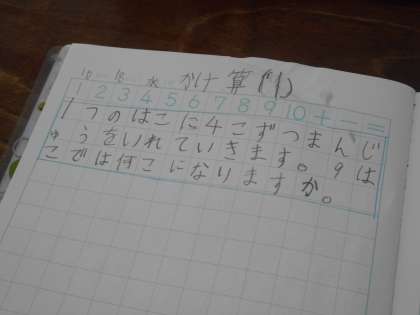 10 18 水 かけ算(1)
1 2 3 4 5 6 7 8 9 10 + - =
1つのはこに4こずつまんじ
ゅうをいれていきます。9は
こでは何こになりますか。